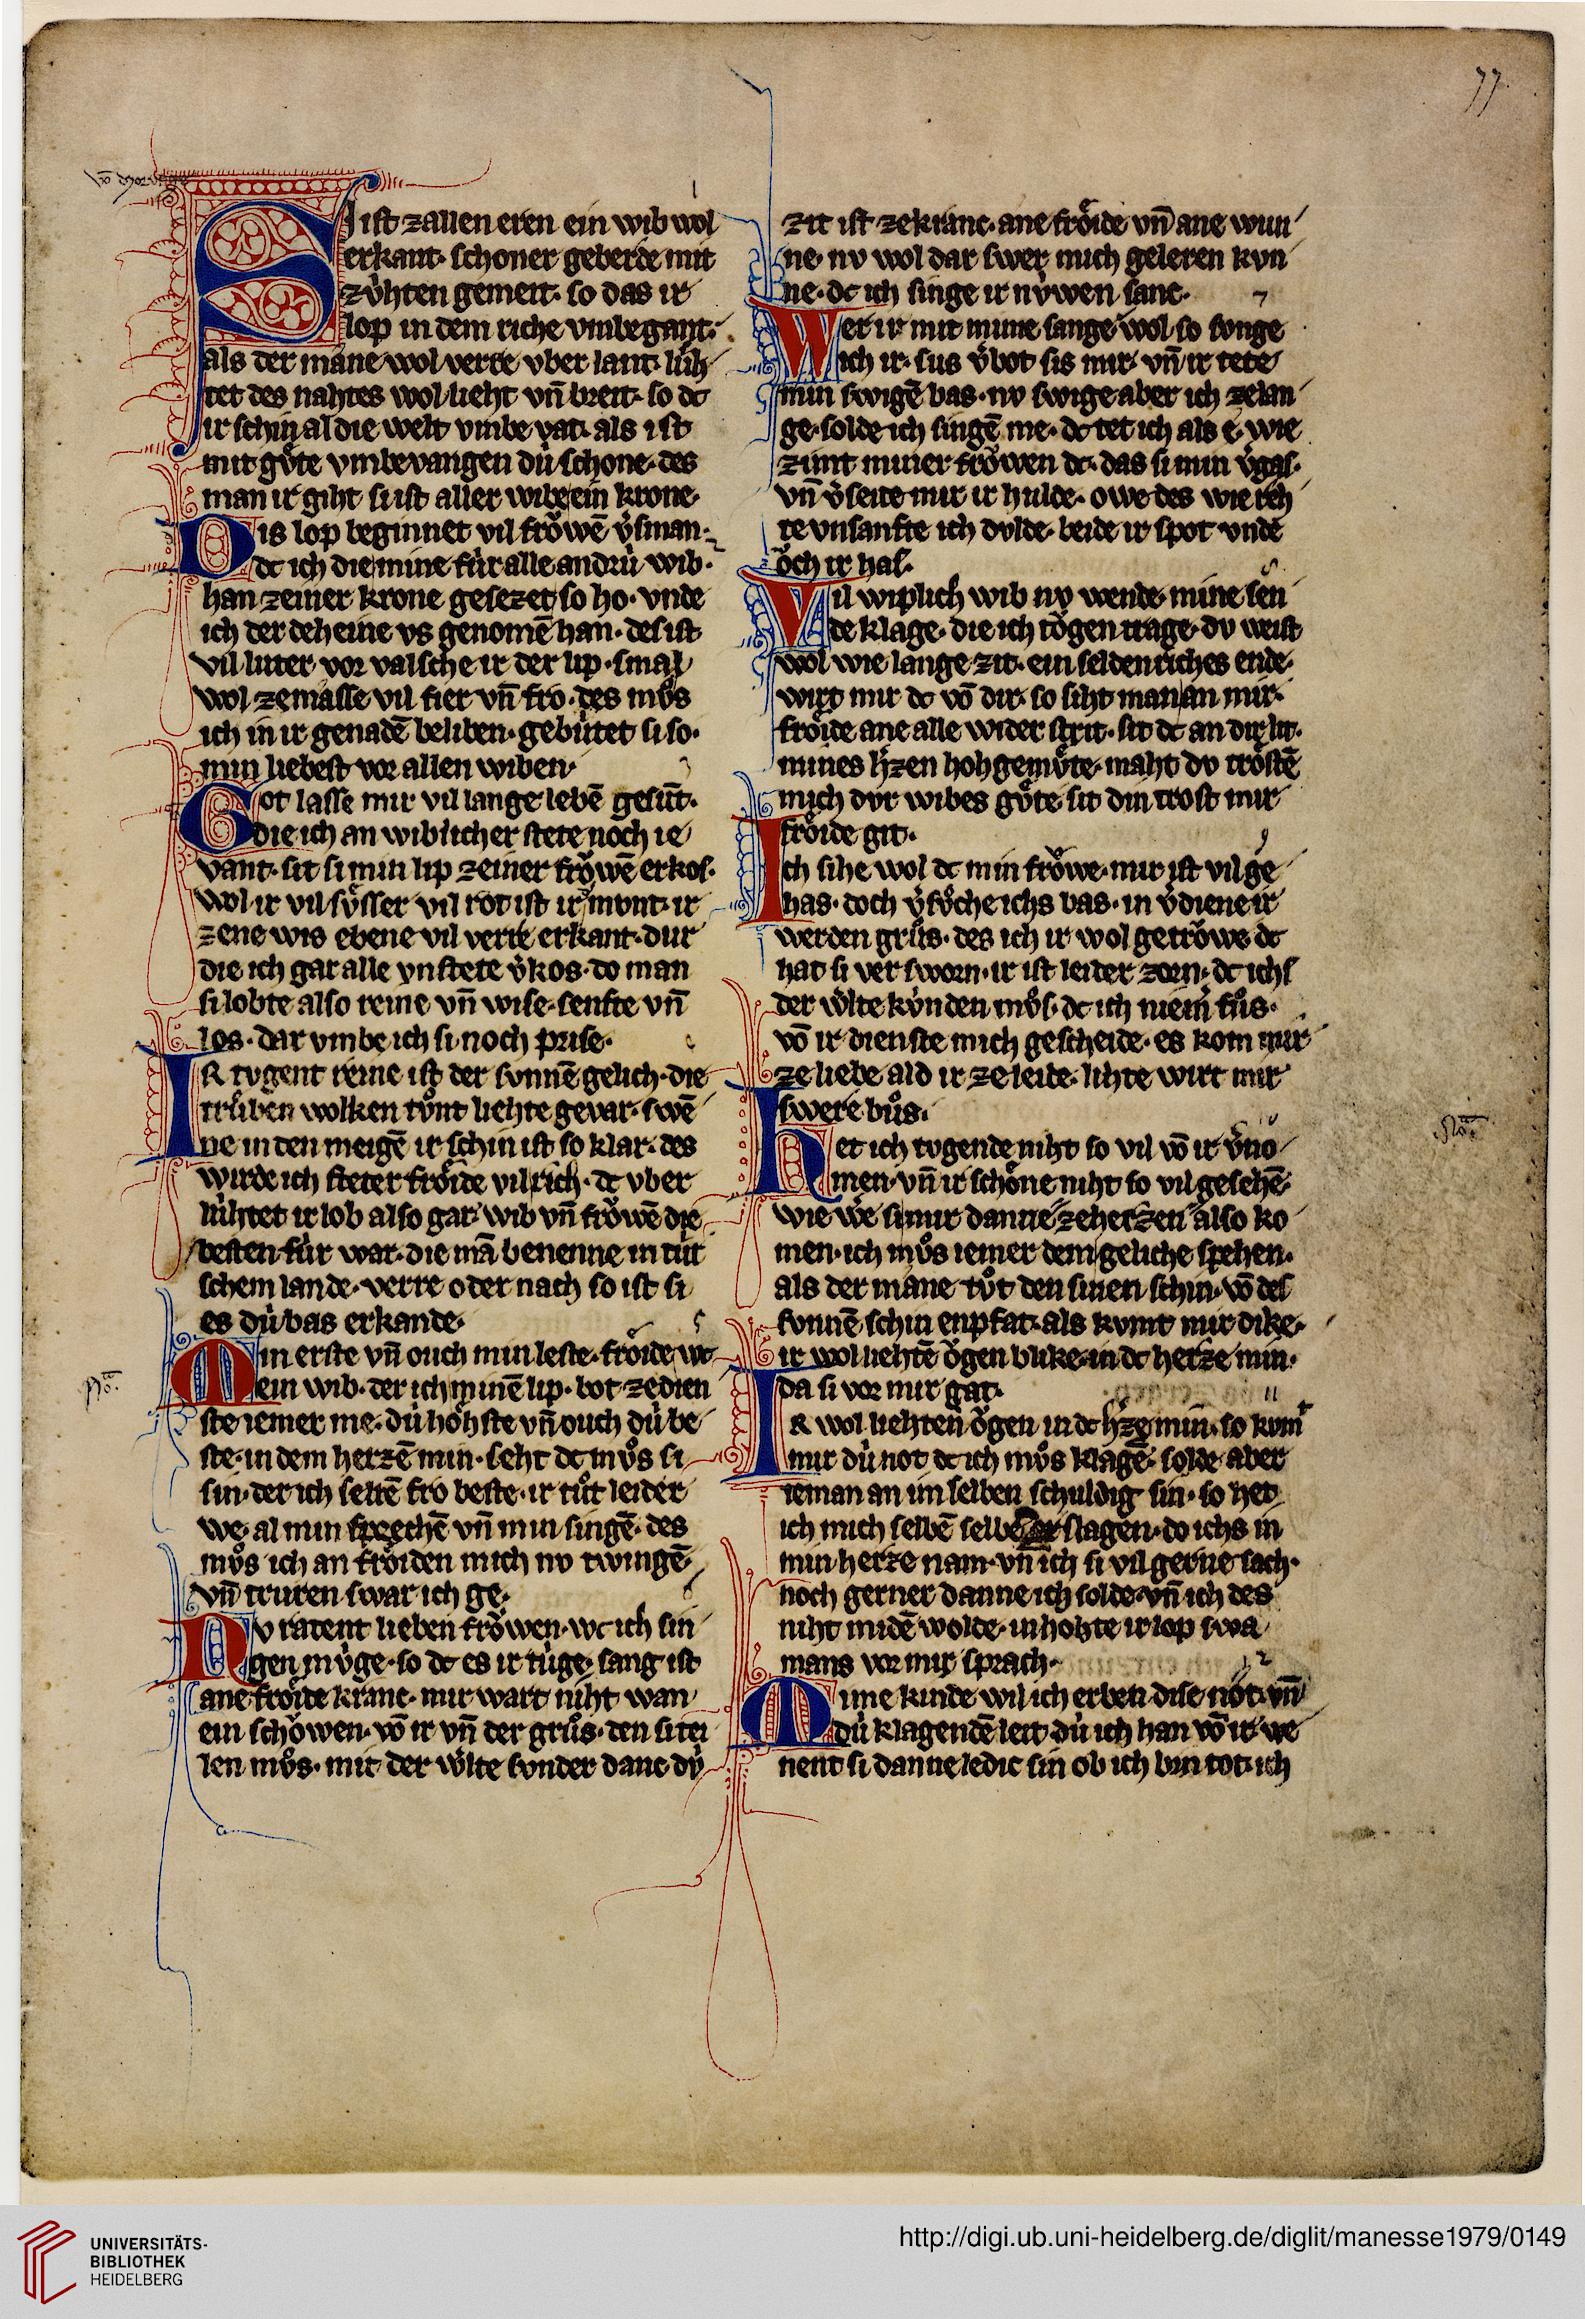 77
SI ist zallen eren ein wib wol
erkant· schoner geberde mit
zv̊hten gemeit· so das ir
lop in dem riche vmbegant·
als der mane wol verre vber lant· lúh
tet des nahtes wol lieht vn̄ breit· so dc
ir schin al die welt vmbe vat· als ist
mit gv̊te vmbevangen dú schone· des
man ir giht si ist aller wibe ein krone·
DIs lop beginnet vil frǒwē v̾sman·
dc ich die mine fúr alle andrú wib·
han zeiner krone gesezet so ho· vnde
ich der deheine vs genomē han· des ist
vil luter vor valsche ir der lip· smal
wol ze masse vil fier vn̄ fro· des mv̊s
ich in ir genadē beliben· gebútet si so·
min liebest vor allen wiben·
GOt lasse mir vil lange lebē gesūt·
die ich an wiblicher stete noch ie
vant· sit si min lip zeiner frǒwē erkos·
wol ir vil sv̊sser vil rot ist ir mvnt· ir
zene wis ebene vil verre erkant· dur
die ich gar alle vnstete v̾kos· do man
si lobte also reine vn̄ wise· senfte vn̄
los· dar vmbe ich si noch prise·
IR tvgent reine ist der svnnē gelich· die
trůben wolken tv̊nt liehte gevar· swē
ne in den meigē ir schin ist so klar· des
wirde ich steter frǒide vil rich· dc vber
lúhtet ir lob also gar· wib vn̄ frǒwē die
besten fúr war· die mā benenne in tút
schem lande· verre oder nach so ist si
es dú bas erkande·
MIn erste vn̄ ouch min leste· frǒide wc
ein wib· der ich minē lip· bot ze dien
ste iemer me· dú hôhste vn̄ ouch dú be
ste· in dem herzē min· seht dc mv̊s si
sin· der ich seltē fro beste· ir tůt leider
we· al min sprechē vn̄ min singē· des
mv̊s ich an frǒiden mich nv twingē
vn̄ truren swar ich ge·
NV ratent lieben frǒwen· wc ich sin
gen mv̊ge· so dc es ir túge· sang ist
ane frǒide kranc· mir wart niht wan
ein schǒwen· vō ir vn̄ der grůs· den si tei
len mv̊s· mit der w̾lte svnder danc dú
zit ist ze kranc· ane frǒide vn̄ ane wun
ne· nv wol dar swer mich geleren kvn
ne· dc ich singe ir núwen sanc·
WEr ir mit mime sange wol· so svnge
ich ir· sus v̾bot sis mir· vn̄ ir tete
min swigē bas· nv swige aber ich ze lan
ge· solde ich singē me· dc tet ich als e· wie
zimt miner frǒwen dc· das si min v̾gas·
vn̄ v̾seite mir ir hulde· owe des wie reh
te vnsanfte ich dvlde· beide ir spot vnde
ǒch ir has·
VIl wiplich wib nv wende· mine sen
de klage· die ich tǒgen trage· dv weist
wol wie lange zit· ein selden riches ende·
wirt mir dc vō dir· so siht man an mir·
frǒide ane alle wider strit· sit dc an dir lit·
mines h̾zen hohgemv̊te· maht dv trôstē
mich dvr wibes gůte· sit din trost mir
frǒide git·
ICh sihe wol dc min frǒwe· mir ist vil ge
has· doch v̾sůche ichs bas· in v̾diene ir
werden grůs· des ich ir wol getrǒwe· dc
hat si versworn· ir ist leider zorn· dc ichs
der w̾lte kúnden mv̊s· dc ich niem̾ fůs·
vō ir dienste mich gescheide· es kom mir
ze liebe ald ir ze leide· lihte wirt mir
swere bůs·
HEt ich tvgende niht so vil vō ir v̾no
men· vn̄ ir schône niht so vil gesehē·
wie w̾e si mir danne ze herzen also ko
men· ich mv̊s iemer dem geliche spehen·
als der mane tůt den sinen schin· vō des
svnnē schin enpfat· als kvmt mir dike·
ir wol liehtē ǒgen blike· in dc herze min·
da si vor mir gat·
IR wol liehten ǒgen in dc h̾ze min· so kumt
mir dú not dc ich mv̊s klagē· solde aber
ieman an im selben schuldig sin· so het
ich mich selbē selbe er slagen· do ichs in
min herze nam· vn̄ ich si vil gerne sach·
noch gerner danne ich solde· vn̄ ich des
niht midē wolde· in hohte ir lop swa
mans vor mir sprach·
MIme kinde wil ich erben dise not· vn̄
dú klagendē leit dú ich han vō ir· we
nent si danne ledic sin ob ich bin tot· ich
UNIVERSITÄTS-
BIBLIOTHEK
HEIDELBERG
http://digi.ub.uni-heidelberg.de/diglit/manesse1979/0149